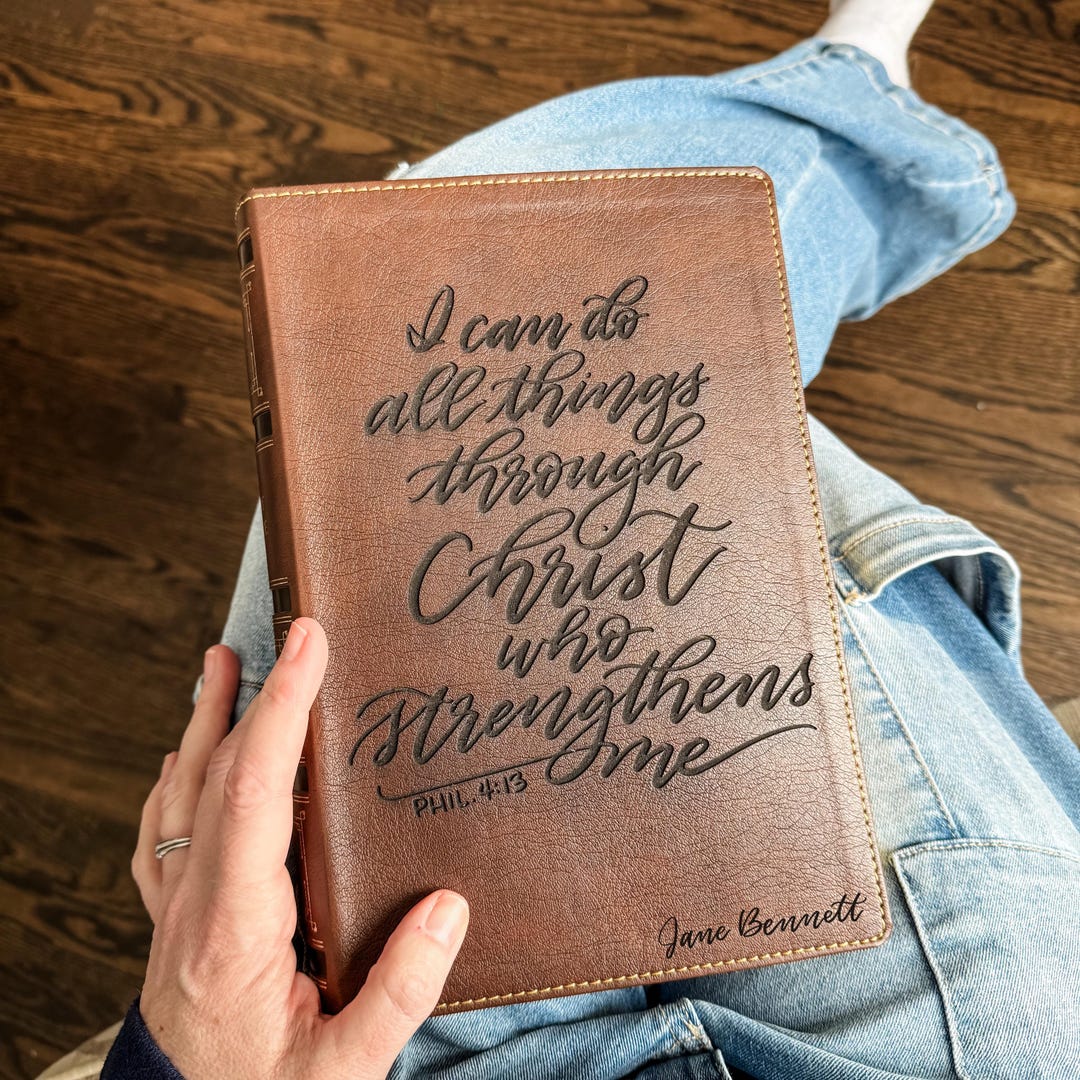 I can do
all things
through
Christ
who
strengthens
me
PHIL. 4:13
Jane Bennett